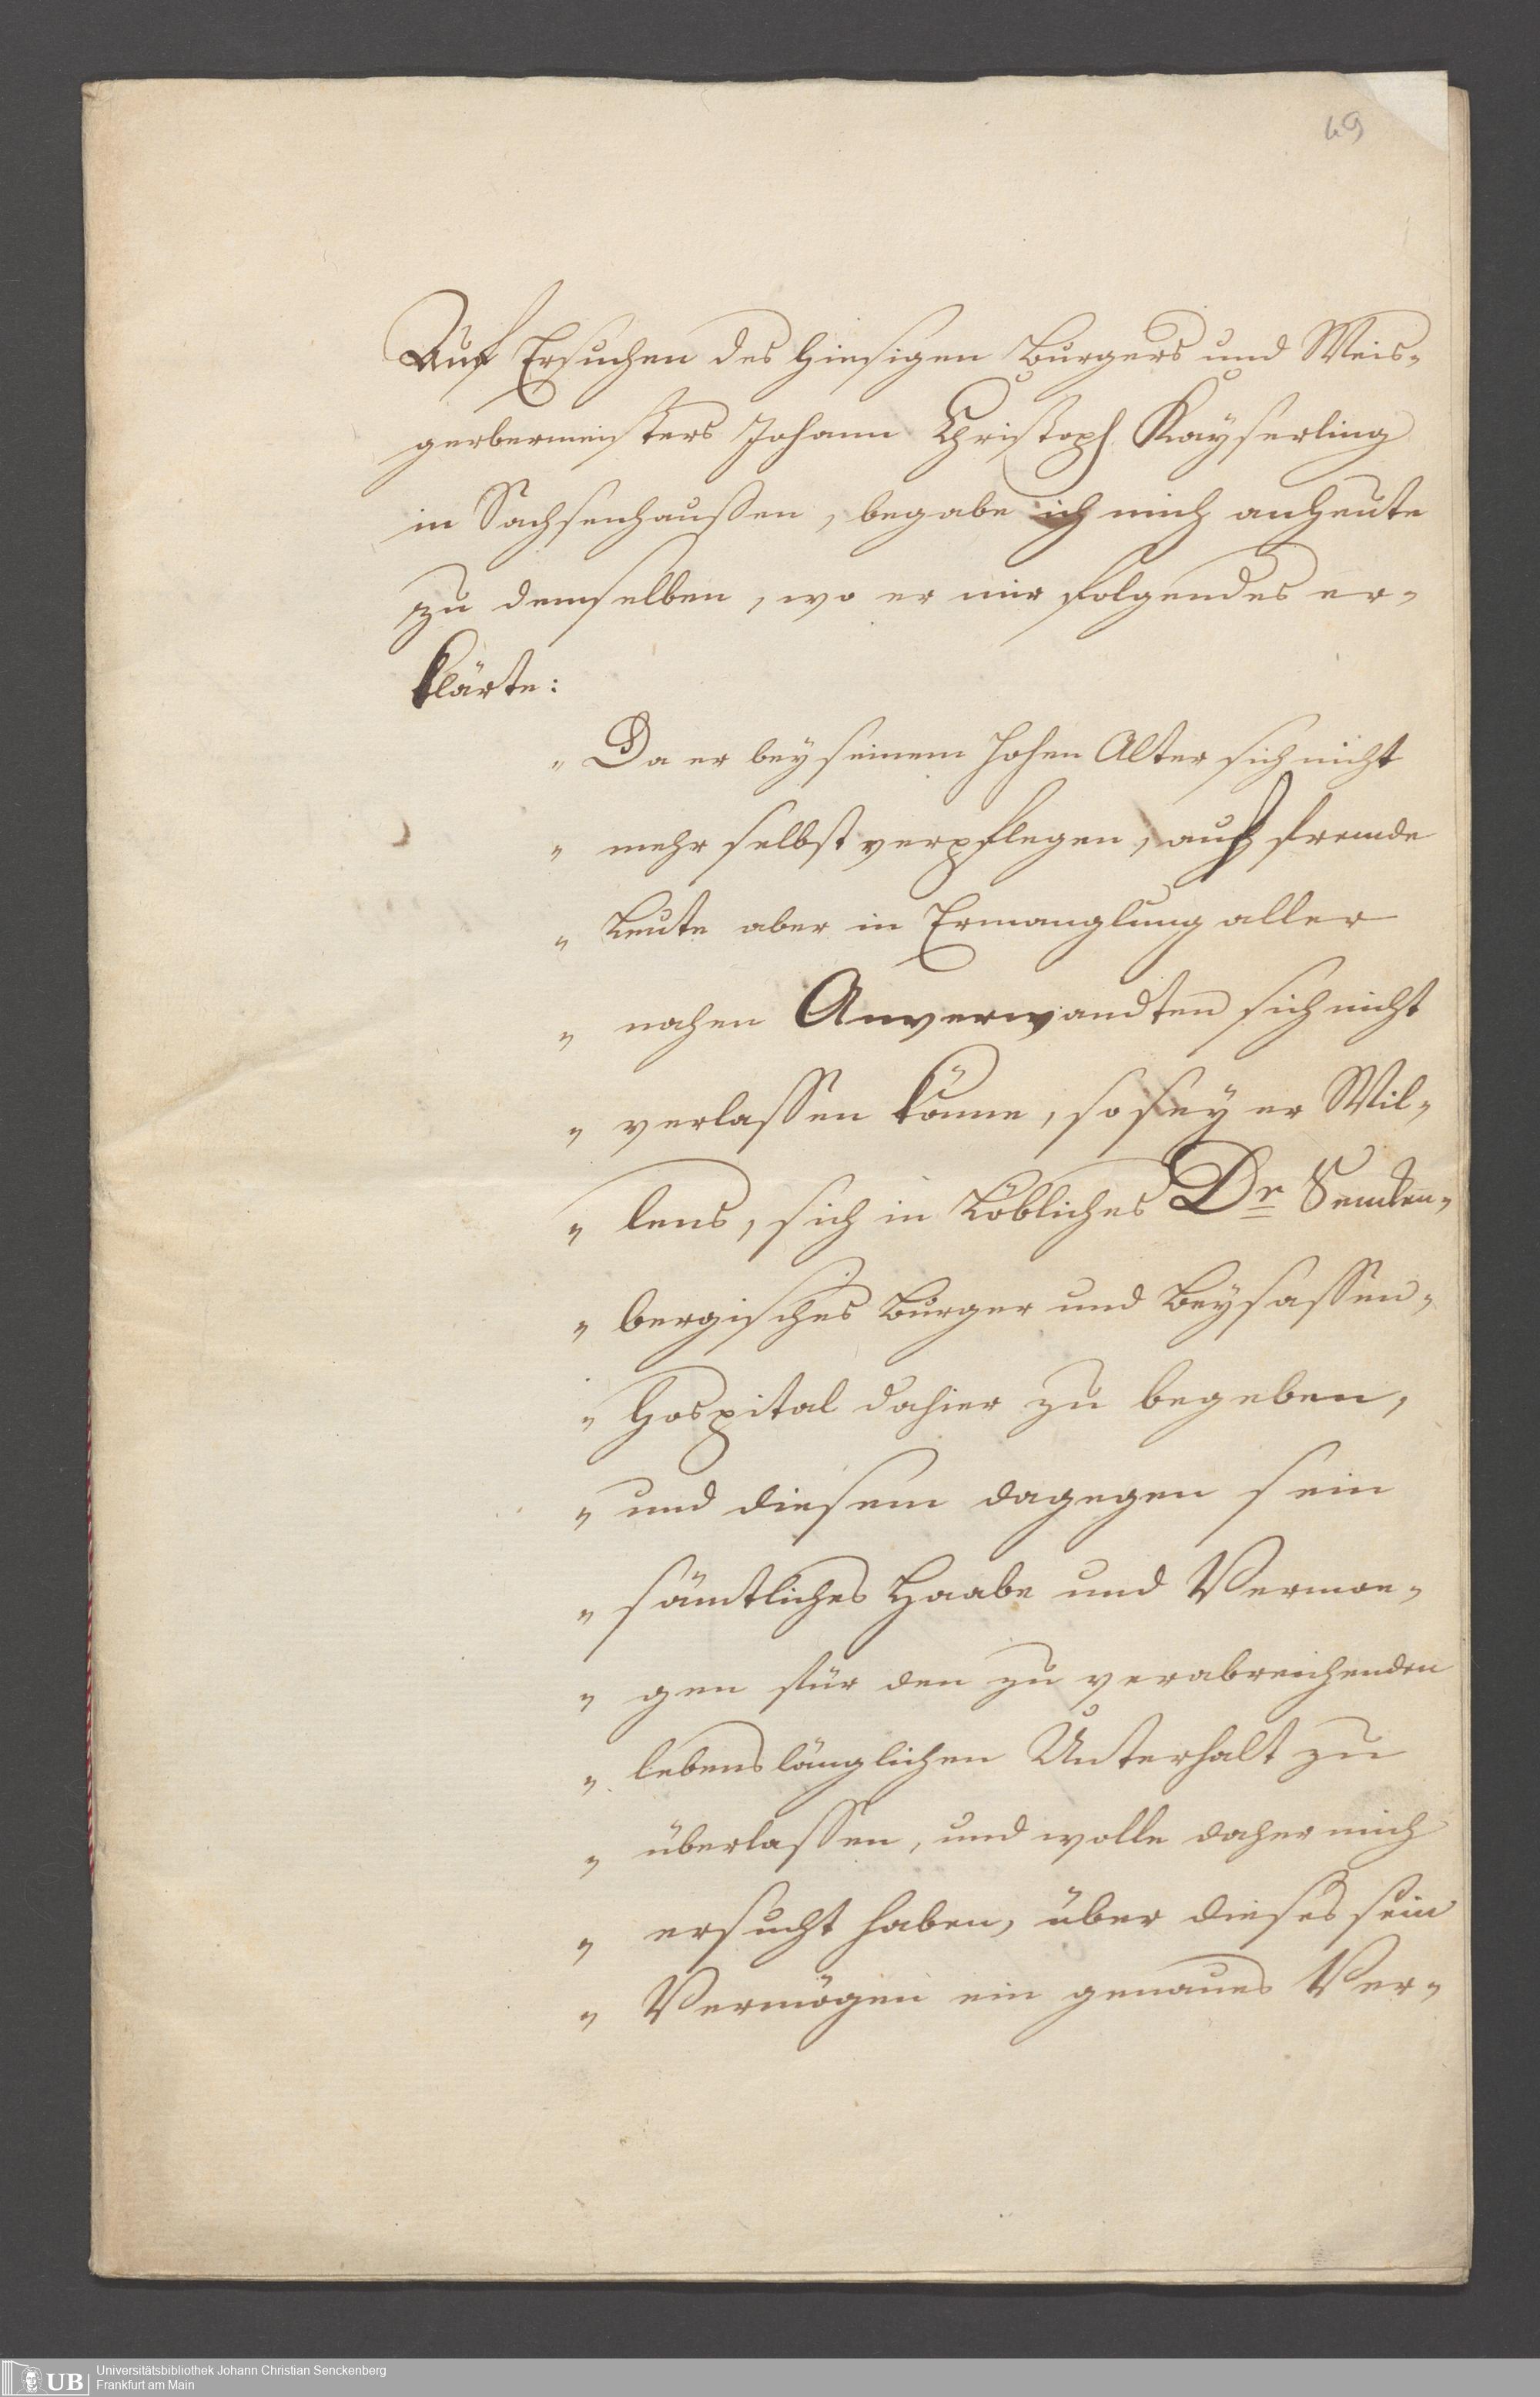 69
Auf Ersuchen des hiesigen Burgers und Weis-
gerbermeisters Johann Christoph Kayserling
in Sachsenhaußen, begabe ich mich anheute
zu demselben, wo er mir folgendes er-
klärte:
" Da er bey seinem hohen Alter sich nicht
" mehr selbst verpflegen, auf fremde
" Leute aber in Ermanglung aller
" nahen Anverwandten sich nicht
" verlassen könne, so sey er Wil-
" lens, sich in Löbliches Dr Senken-
" bergisches Burger und Beysassen-
" Hospital dahier zu begeben,
" und diesem dagegen sein
" sämtliches Haabe und Vermoe-
" gen für den zu verabreichenden
" lebenslänglichen Unterhalt zu
" überlassen, und wolle daher mich
" ersucht haben, über dieses sein
" Vermögen ein genaues Ver-
UB
Universitätsbibliothek Johann Christian Senckenberg
Frankfurt am Main